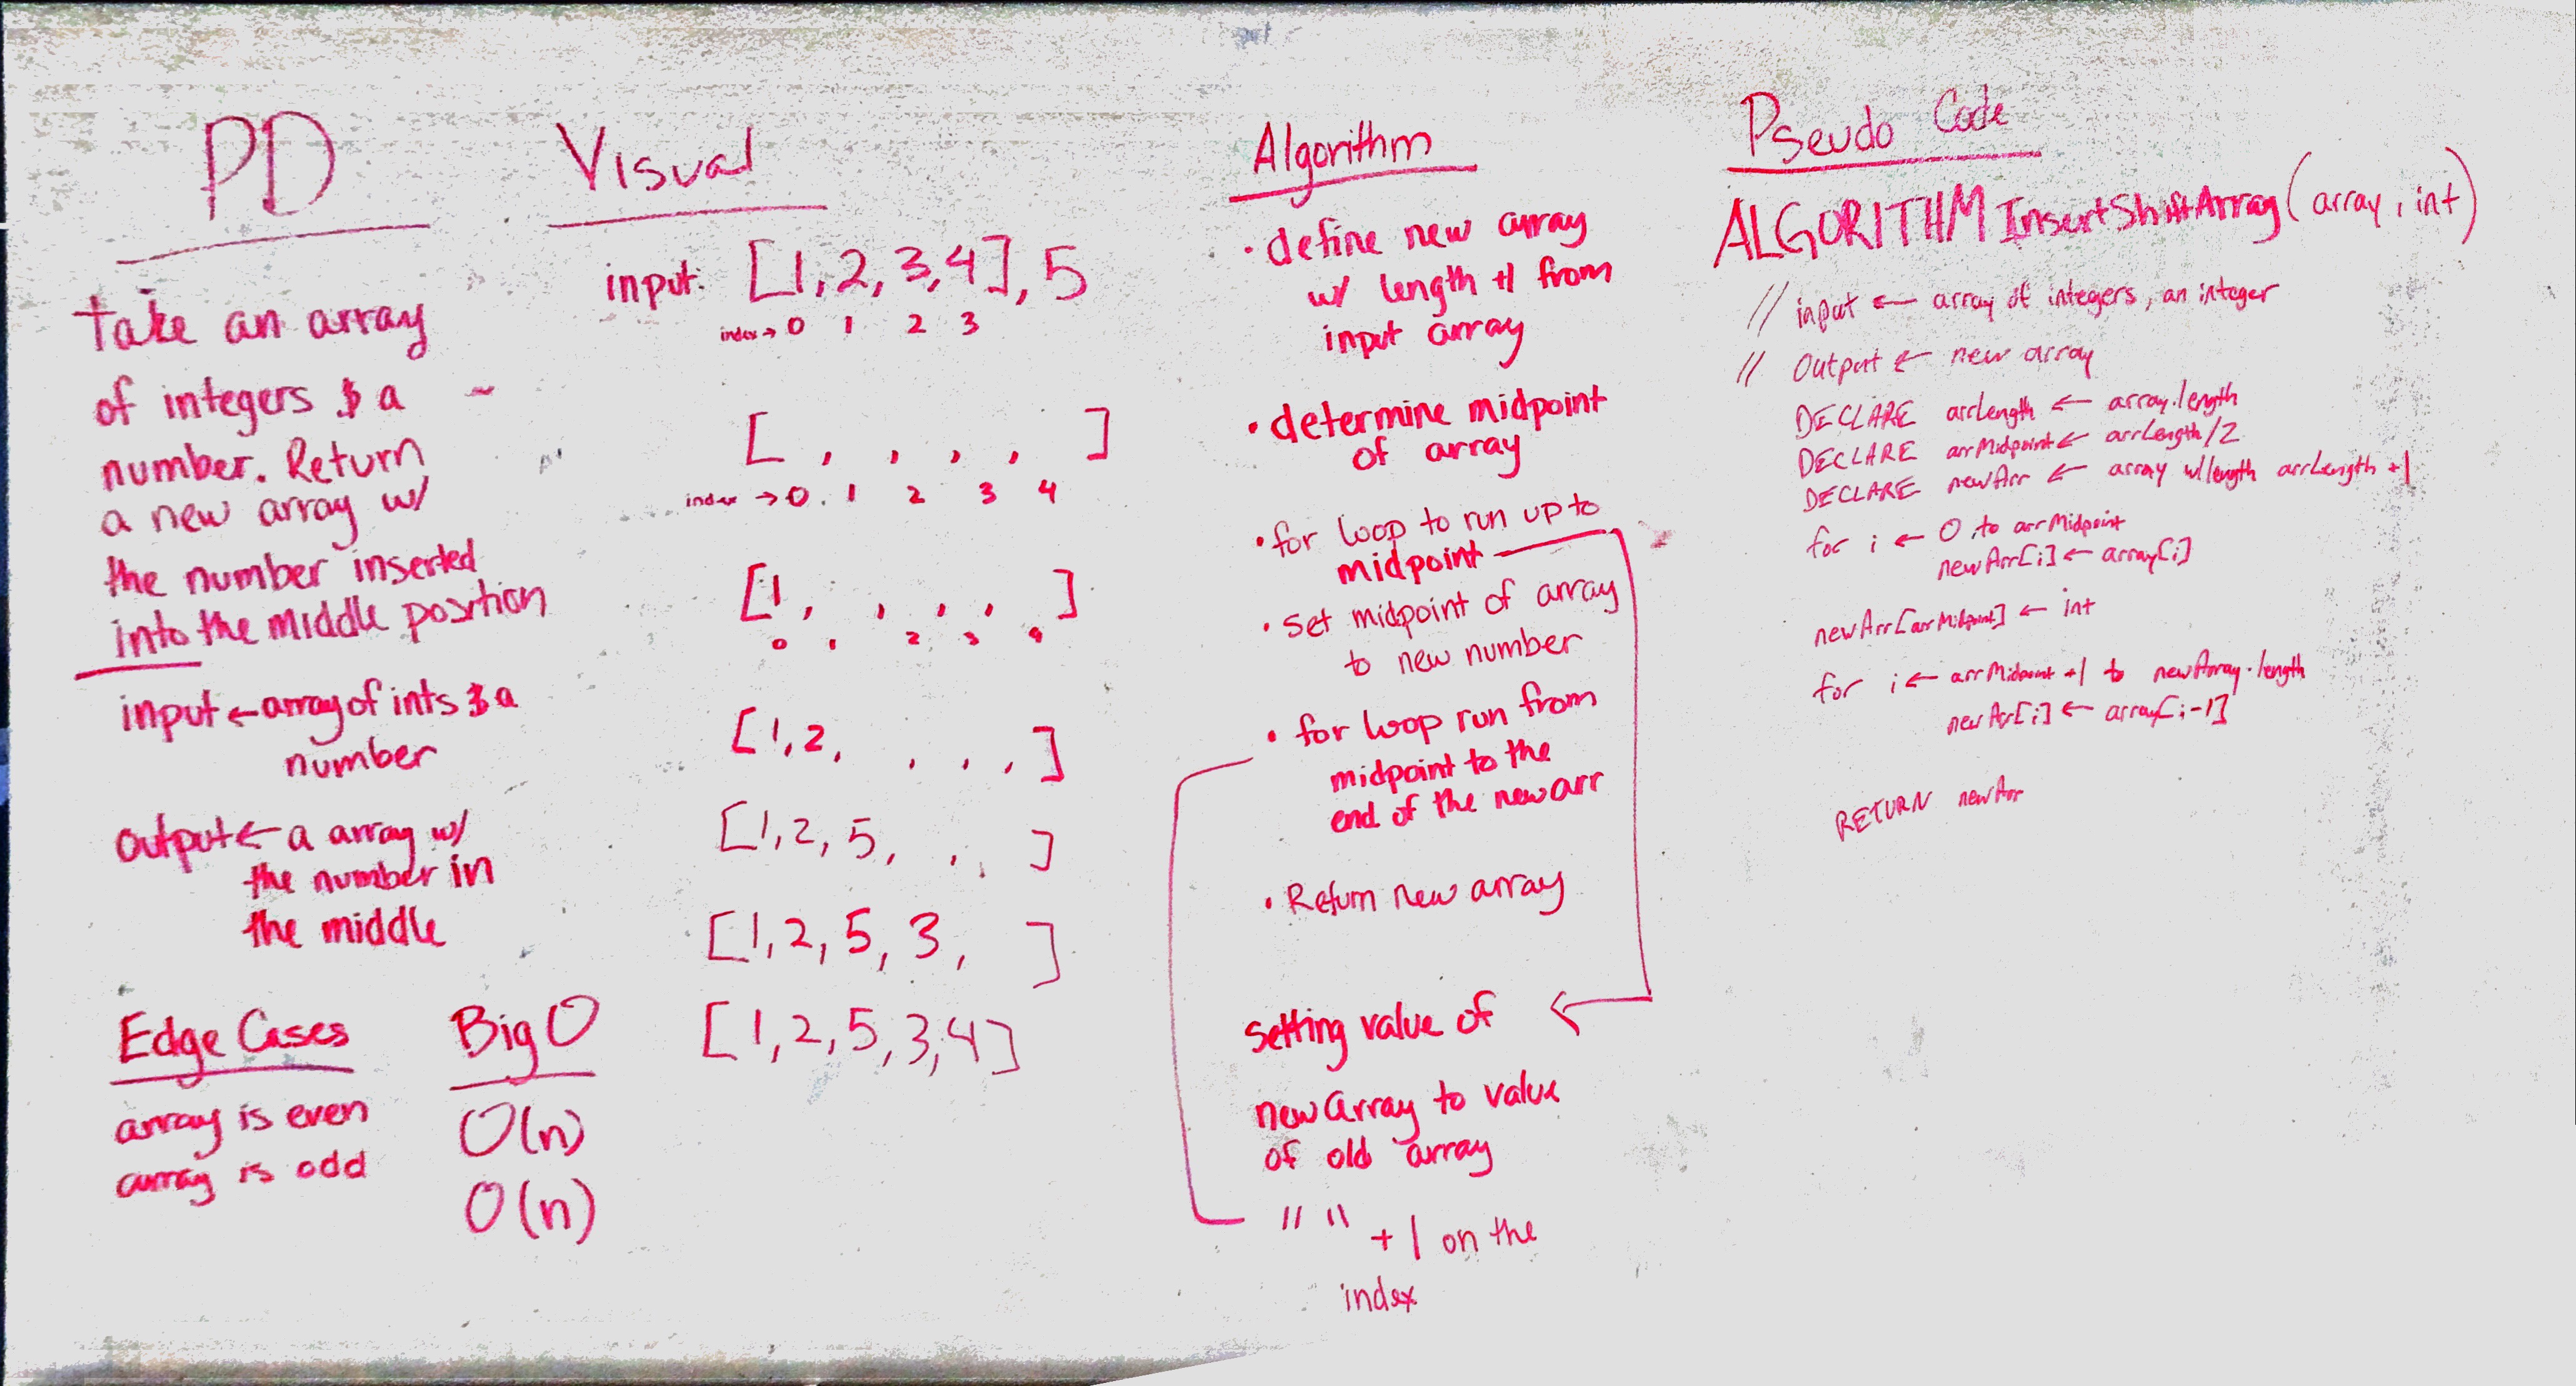 PD
take an array
of integers & a
number. Return
a new array w/
the number inserted
into the middle position
input ← array of ints & a
number
output ← a array w/
the number in
the middle
Edge Cases
array is even
array is odd
Big O
O(n)
O(n)
Visual
input: [1,2,3,4], 5
index → 0 1 2 3
[ , , , , ]
index → 0 1 2 3 4
[1, , , , ]
0 1 2 3 4
[1,2, , , , ]
[1,2,5, , , ]
[1,2,5,3, ]
[1,2,5,3,4]
Algorithm
• define new array
w/ length +1 from
input array
• determine midpoint
of array
• for loop to run up to
midpoint
• set midpoint of array
to new number
• for loop run from
midpoint to the
end of the new arr
• Return new array
setting value of
new array to value
of old array
" " +1 on the
index
Pseudo Code
ALGORITHM InsertShiftArray(array, int)
// input ← array of integers, an integer
// Output ← new array
DECLARE arrLength ← array.length
DECLARE arrMidpoint ← arrLength/2
DECLARE newArr ← array w/length arrLength +1
for i ← 0 to arrMidpoint
newArr[i] ← array[i]
newArr[arrMidpoint] ← int
for i ← arrMidpoint +1 to newArray.length
newArr[i] ← array[i-1]
RETURN newArr